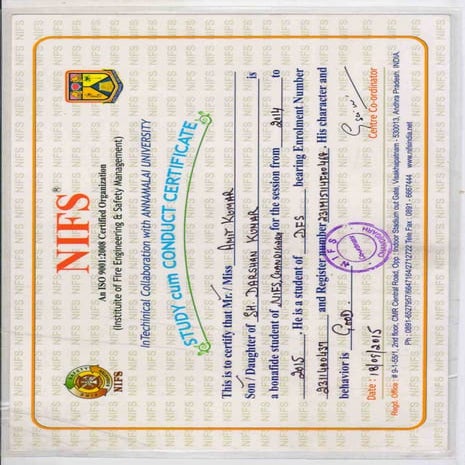 NIFS®
An ISO 9001:2008 Certified Organization
(Instituite of Fire Engineering & Safety Management)
InTechnical Collaboration with ANNAMALAI UNIVERSITY
STUDY cum CONDUCT CERTIFICATE
NIFS
This is to certify that Mr. / Miss AMIT KUMAR
Son / Daughter of SH. DARSHAN KUMAR is
a bonafide student of NIFS, CHANDIGARH for the session from 2014 to
2015. He is a student of DFS bearing Enrolment Number
and Register number His character and
behavior is GOOD.
Date : 18/05/2015
Centre Co-ordinator
NIFS
CHANDIGARH
Regd. Office : # 9-1-55/1, 2nd floor, CMR Central Road, Opp. Indoor Stadium out Gate, Visakhapatnam - 530013, Andhra Pradesh, INDIA
www.nifsindia.net